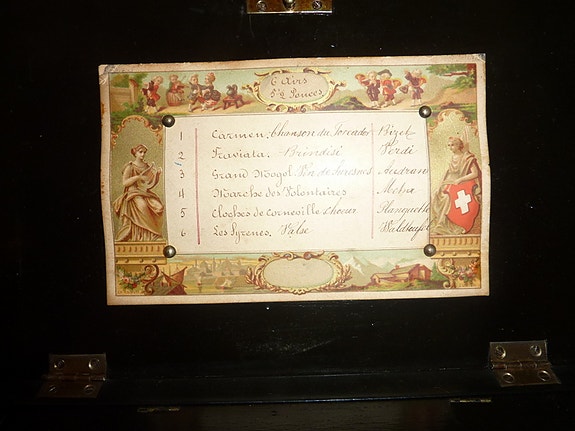 6 Airs
5½ Pouces
1 Carmen. Chanson du Toréador Bizet
2 Traviata. Brindisi Verdi
3 Grand Mogol. de Suresnes Audran
4 Marche des Volontaires Metra
5 Cloches de Corneville Choeur Planquette
6 Les Pyrenes. Valse Waldteufel